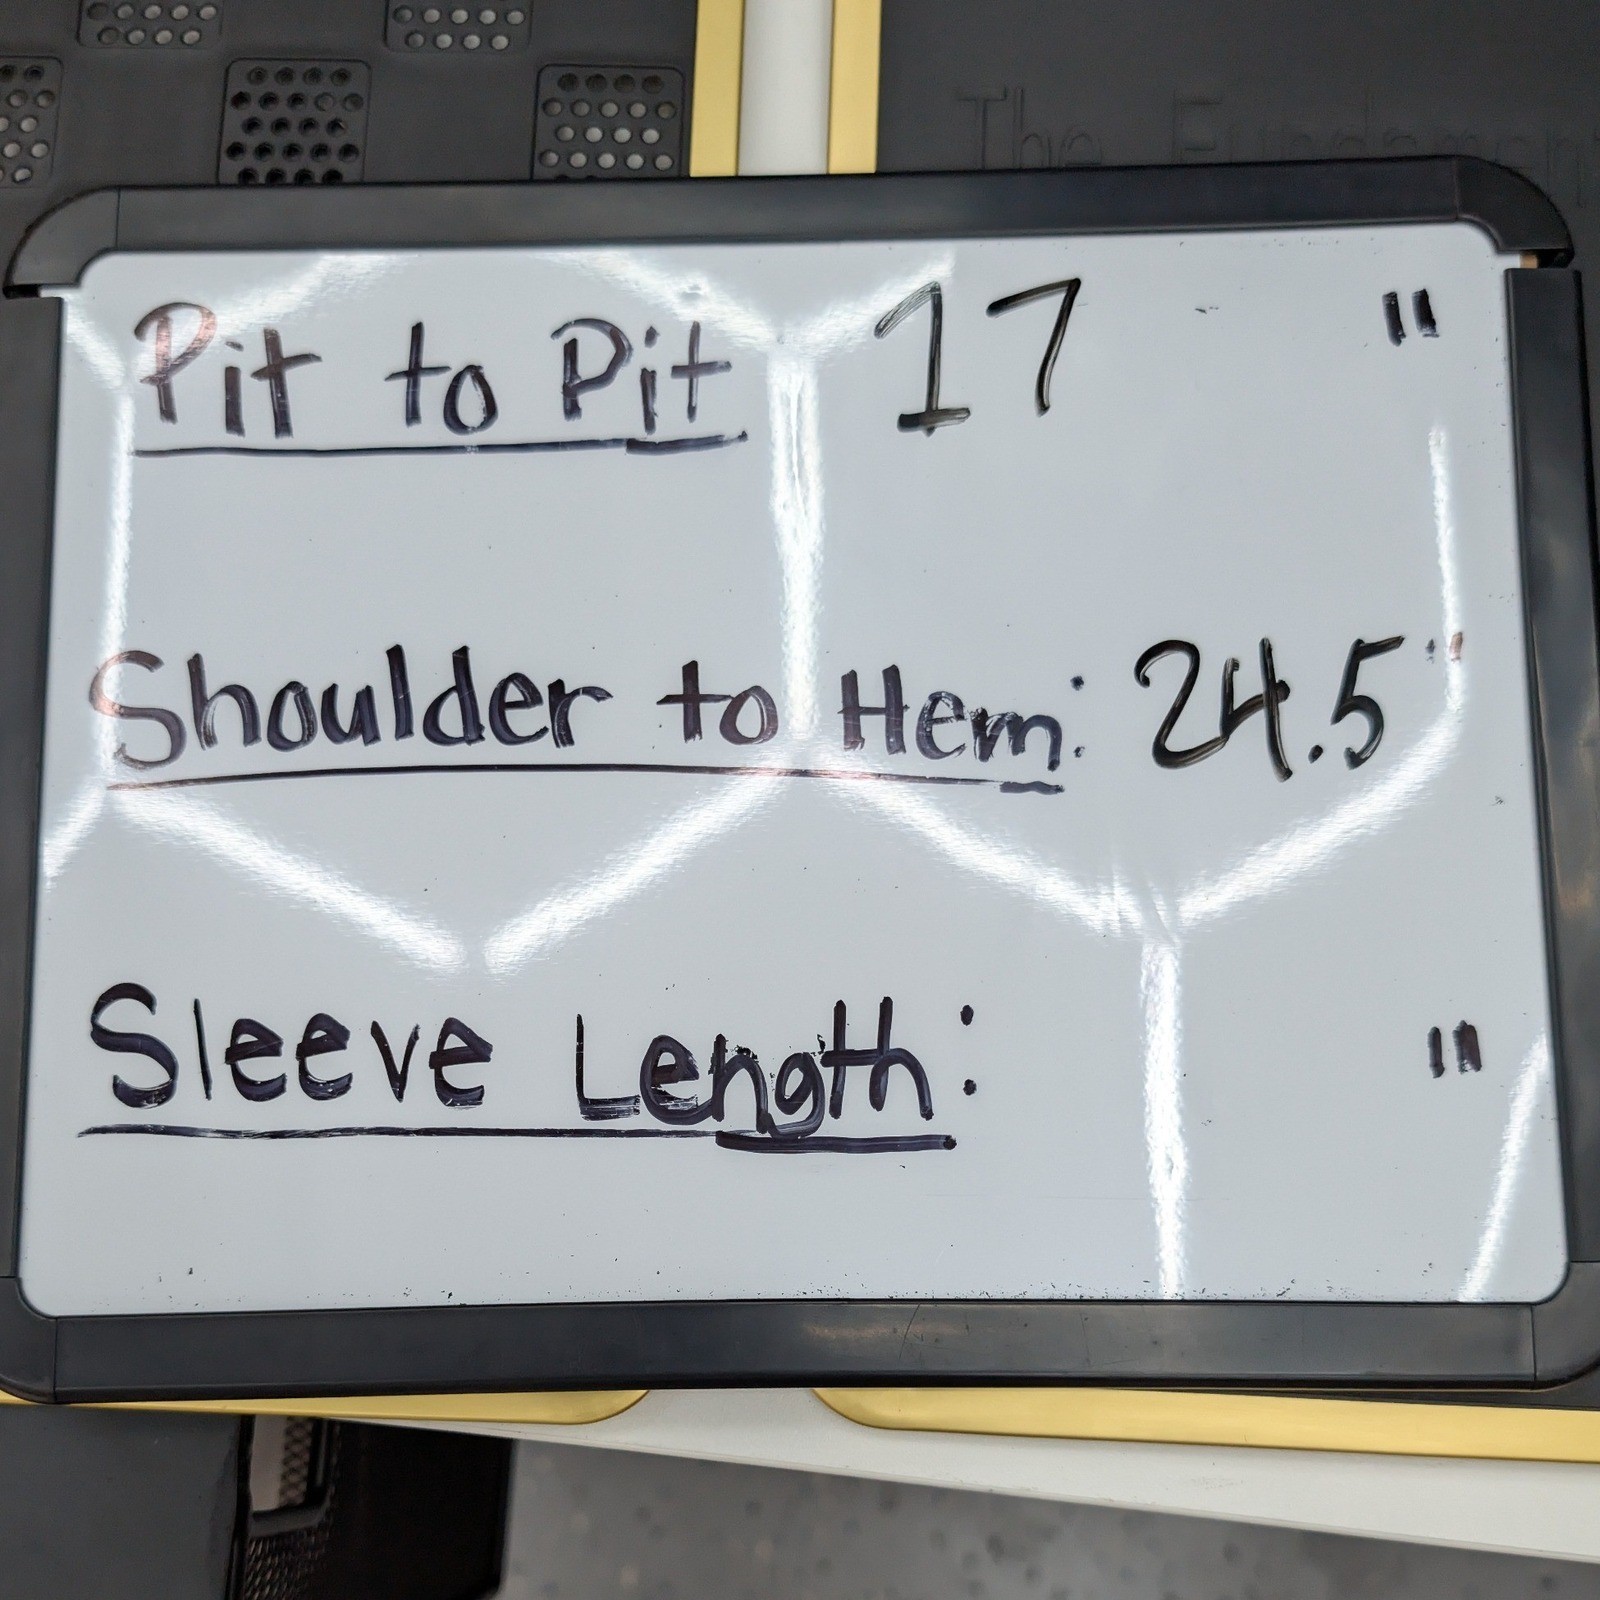 The Fundament
Pit to Pit 17 "
Shoulder to Hem: 24.5"
Sleeve Length: "